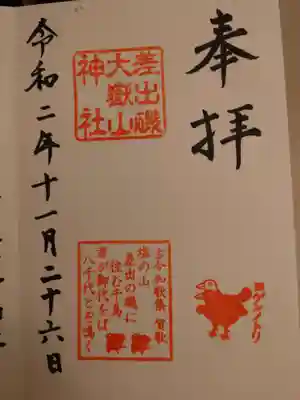 奉拝
差出磯
大嶽山
神社
古今和歌集 賀歌
塩の山
差出の磯に
住む千鳥
君が御代をば
八千代とぞ鳴く
令和二年十一月二十六日